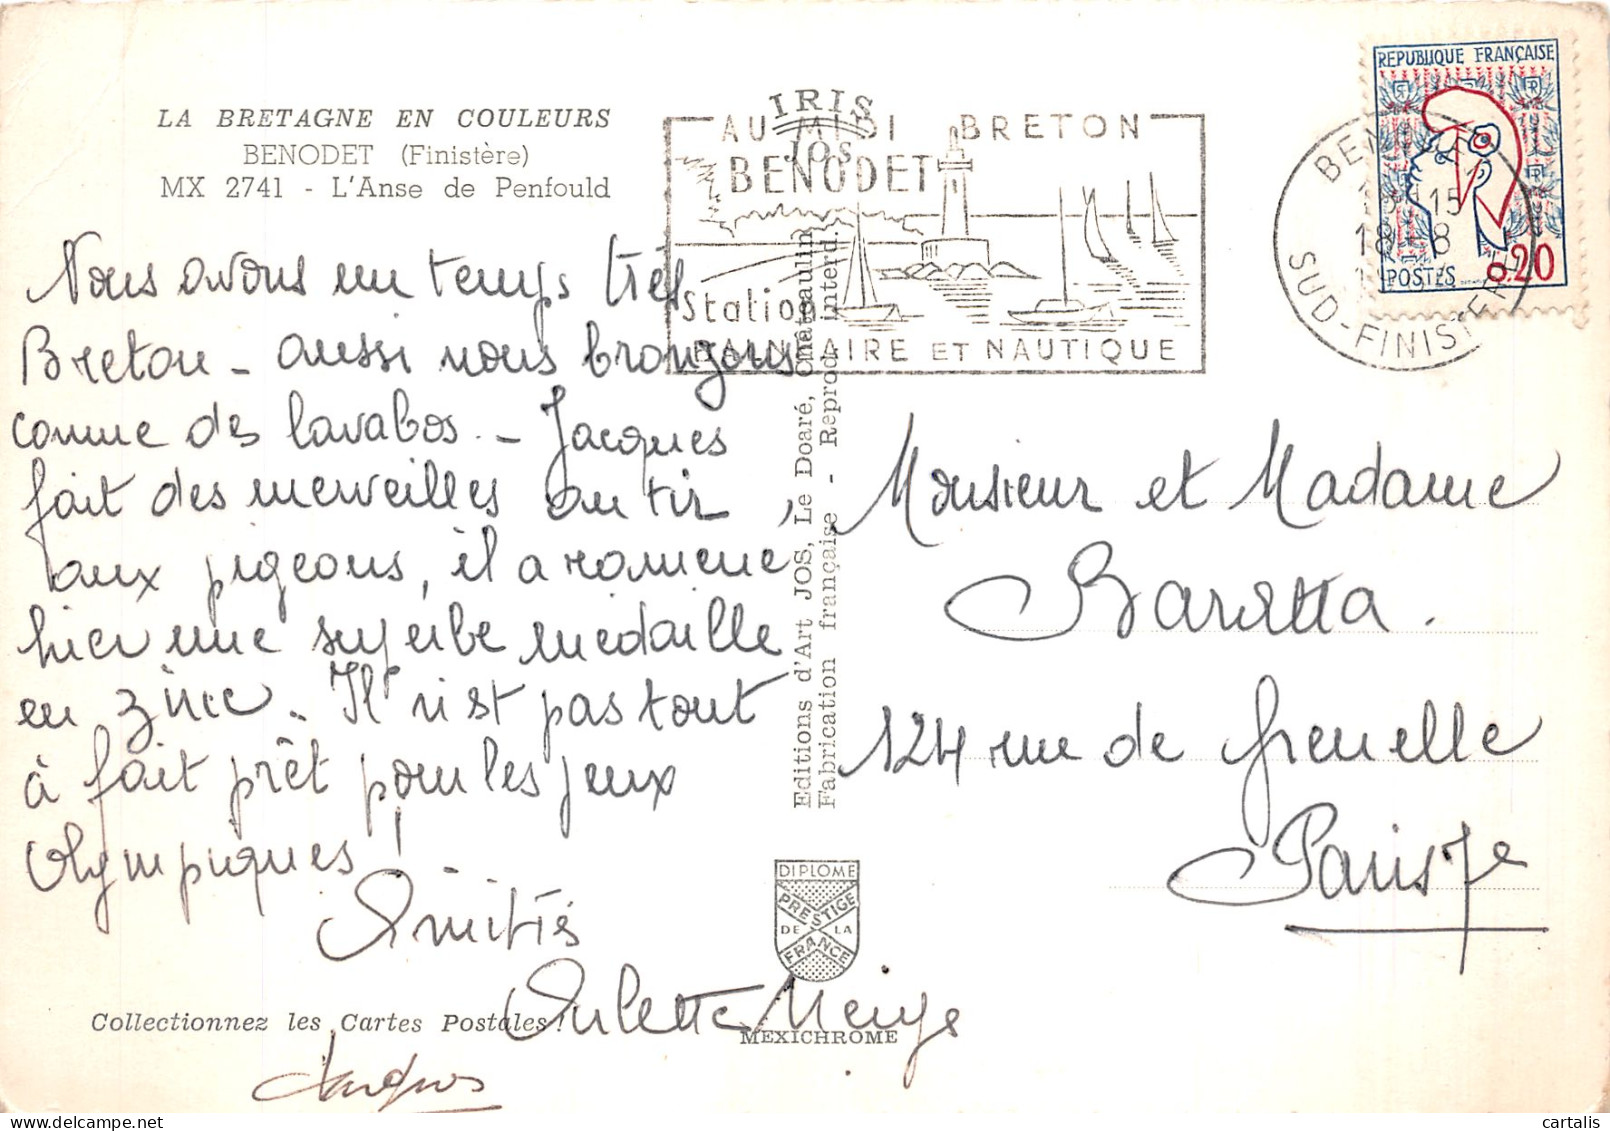 LA BRETAGNE EN COULEURS
BENODET (Finistère)
MX 2741 - L'Anse de Penfould
Nous avons un temps très
Breton - aussi nous bronzons
comme des lavabos. - Jacques
fait des merveilles au tir
aux pigeons, il a ramené
hier une superbe médaille
en zinc. Il n'est pas tout
à fait prêt pour les jeux
Olympiques !
Amitiés
Jacques
Collectionnez les Cartes Postales !
IRIS
JOS
AU MIDI BRETON
BENODET
Station
BALNEAIRE ET NAUTIQUE
Editions d'Art JOS, Le Doaré, Chateaulin
Fabrication française - Reprod. interd.
DIPLOME
PRESTIGE
DE LA
FRANCE
MEXICHROME
REPUBLIQUE FRANÇAISE
POSTES
0,20
BENODET
15
18 - 8
SUD-FINISTERE
Monsieur et Madame
Baretta.
124 rue de Grenelle
Paris 7e
cartalis